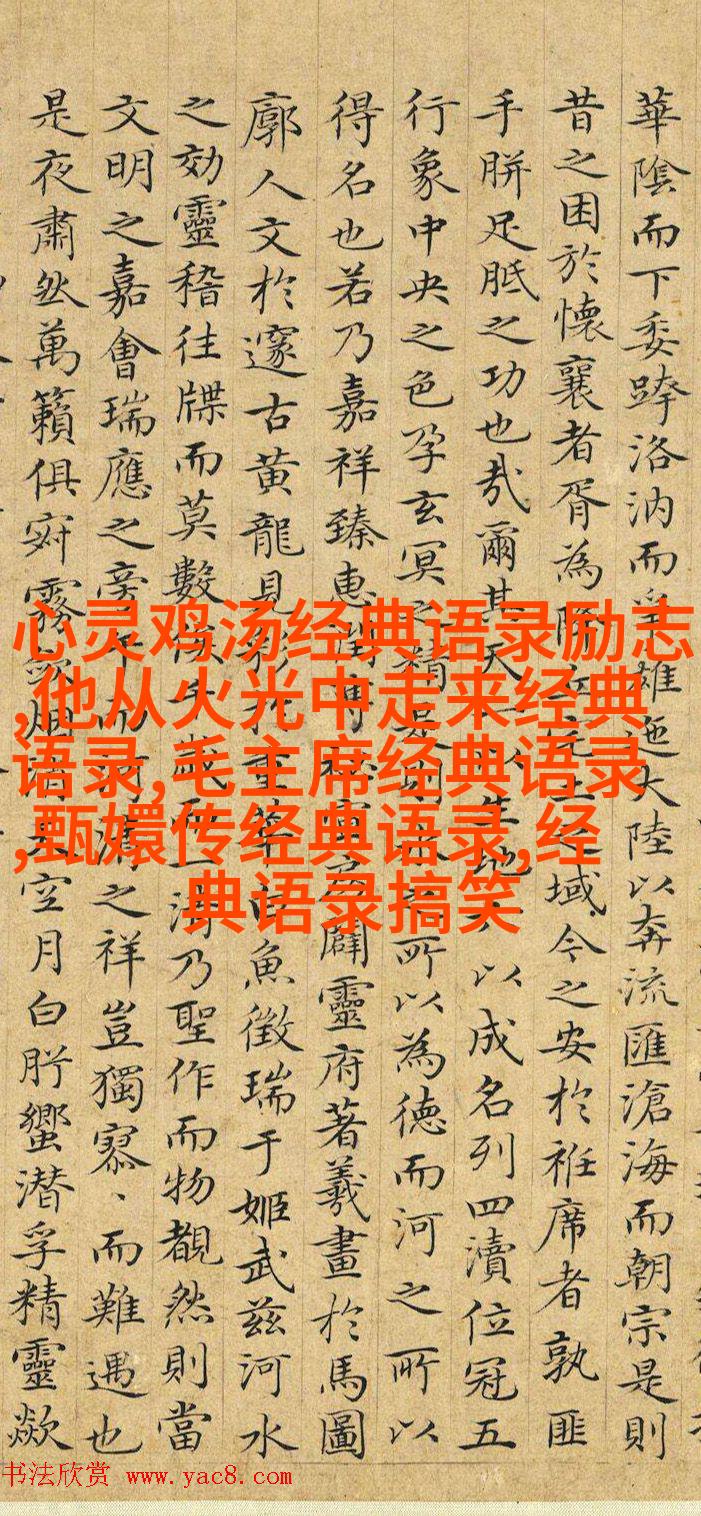 華陰而下委跨洛汭而雄迤大陸以奔流匯滄海而朝宗是則
昔之困於懷襄者胥為降土之域今之安於袵席者孰匪
手胼足胝之功也哉爾其天以生地以成名列四瀆位冠五
行象中央之色孕玄冥之精所以為德而河之所以
得名也若乃嘉祥臻惠闢靈府著羲畫於馬圖
廓人文於邃古黃龍見白魚徵瑞于姬武茲河水
之効靈稽往牒而莫數候千歲而一清乃聖作而物覩然則當
文明之嘉會瑞應之旁午而河清之祥豈獨寥、而難遇也
是夜肅然萬籟俱寂霧空月白肸蠁潜孚精靈歘
心灵鸡汤经典语录励志
,他从火光中走来经典
语录,毛主席经典语录
,甄嬛传经典语录,经
典语录搞笑
书法欣赏 www.yac8.com